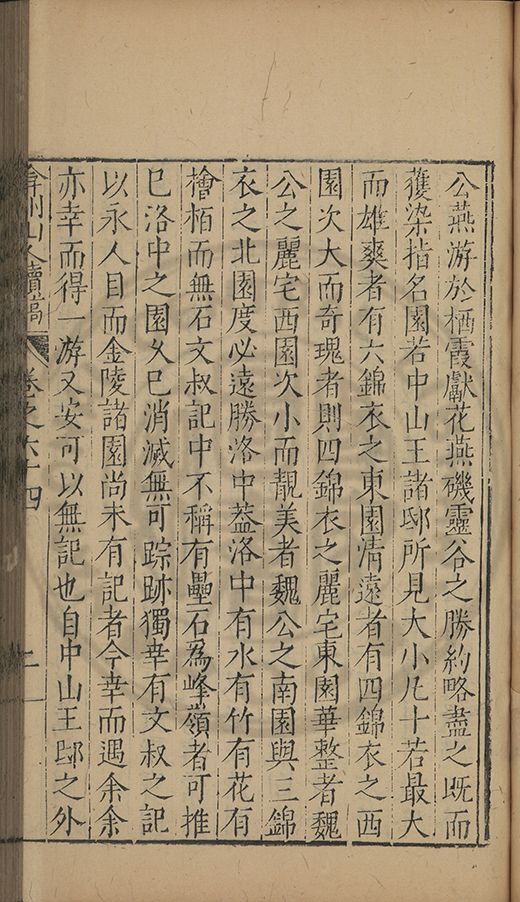 公燕游於栖霞獻花燕磯靈谷之勝約略盡之既而
獲染指名園若中山王諸邸所見大小凡十若最大
而雄爽者有六錦衣之東園清遠者有四錦衣之西
園次大而奇瑰者則四錦衣之麗宅東園華整者魏
公之麗宅西園次小而靚美者魏公之南園與三錦
衣之北園度必遠勝洛中葢洛中有水有竹有花有
檜栢而無石文叔記中不稱有壘石為峰嶺者可推
巳洛中之園乆巳消滅無可踪跡獨幸有文叔之記
以永人目而金陵諸園尚未有記者今幸而遇余余
亦幸而得一游又安可以無記也自中山王邸之外
弇州山人續稿 卷之六十四